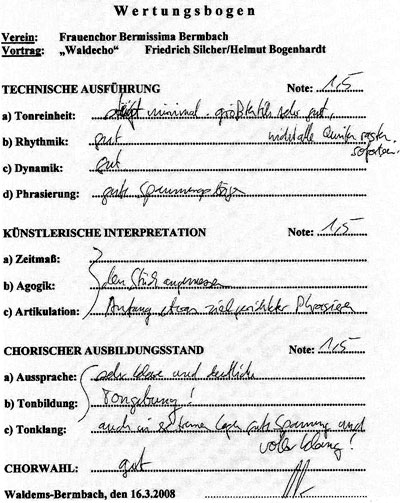 Wertungsbogen
Verein: Frauenchor Bermissima Bermbach
Vortrag: „Waldecho“ Friedrich Silcher/Helmut Bogenhardt
TECHNISCHE AUSFÜHRUNG Note: 1,5
a) Tonreinheit: steigt minimal. größtenteils sehr gut,
nicht alle Quinten rasten
b) Rhythmik: gut
sofort ein.
c) Dynamik: gut
d) Phrasierung: gute Spannungsbögen
KÜNSTLERISCHE INTERPRETATION Note: 1,5
a) Zeitmaß:
b) Agogik: dem Stück angemessen
c) Artikulation: Anfang etwas zielgerichteter Phrasieren
CHORISCHER AUSBILDUNGSSTAND Note: 1,5
a) Aussprache: sehr klare und deutliche
b) Tonbildung: Tongebung!
c) Tonklang: auch in extremen Lagen gute Spannung und
voller Klang!
CHORWAHL: gut
Waldems-Bermbach, den 16.3.2008